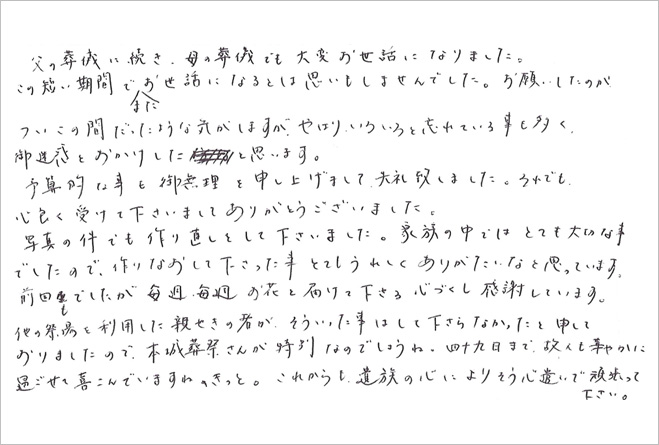 父の葬儀に続き、母の葬儀でも大変お世話になりました。
この短い期間でまたお世話になるとは思いもしませんでした。お願いしたのが
ついこの間だったような気がしますが、やはりいろいろと忘れている事も多く、
御迷惑をおかけしたと思います。
予算的な事も御無理を申し上げまして、失礼致しました。それでも
心良く受けて下さいましてありがとうございました。
写真の件でも作り直しをして下さいました。家族の中ではとても大切な事
でしたので、作りなおして下さった事とてもうれしくありがたいなと思っています。
前回もでしたが毎週、毎週お花を届けて下さる心づくし感謝しています。
他の祭場を利用した親せきの者が、そういった事はして下さらなかったと申して
おりましたので、本城葬祭さんが特別なのでしょうね。四十九日まで、故人も華やかに
過ごせて喜こんでいますね。きっと。これからも、遺族の心によりそう心遣いで頑張って
下さい。